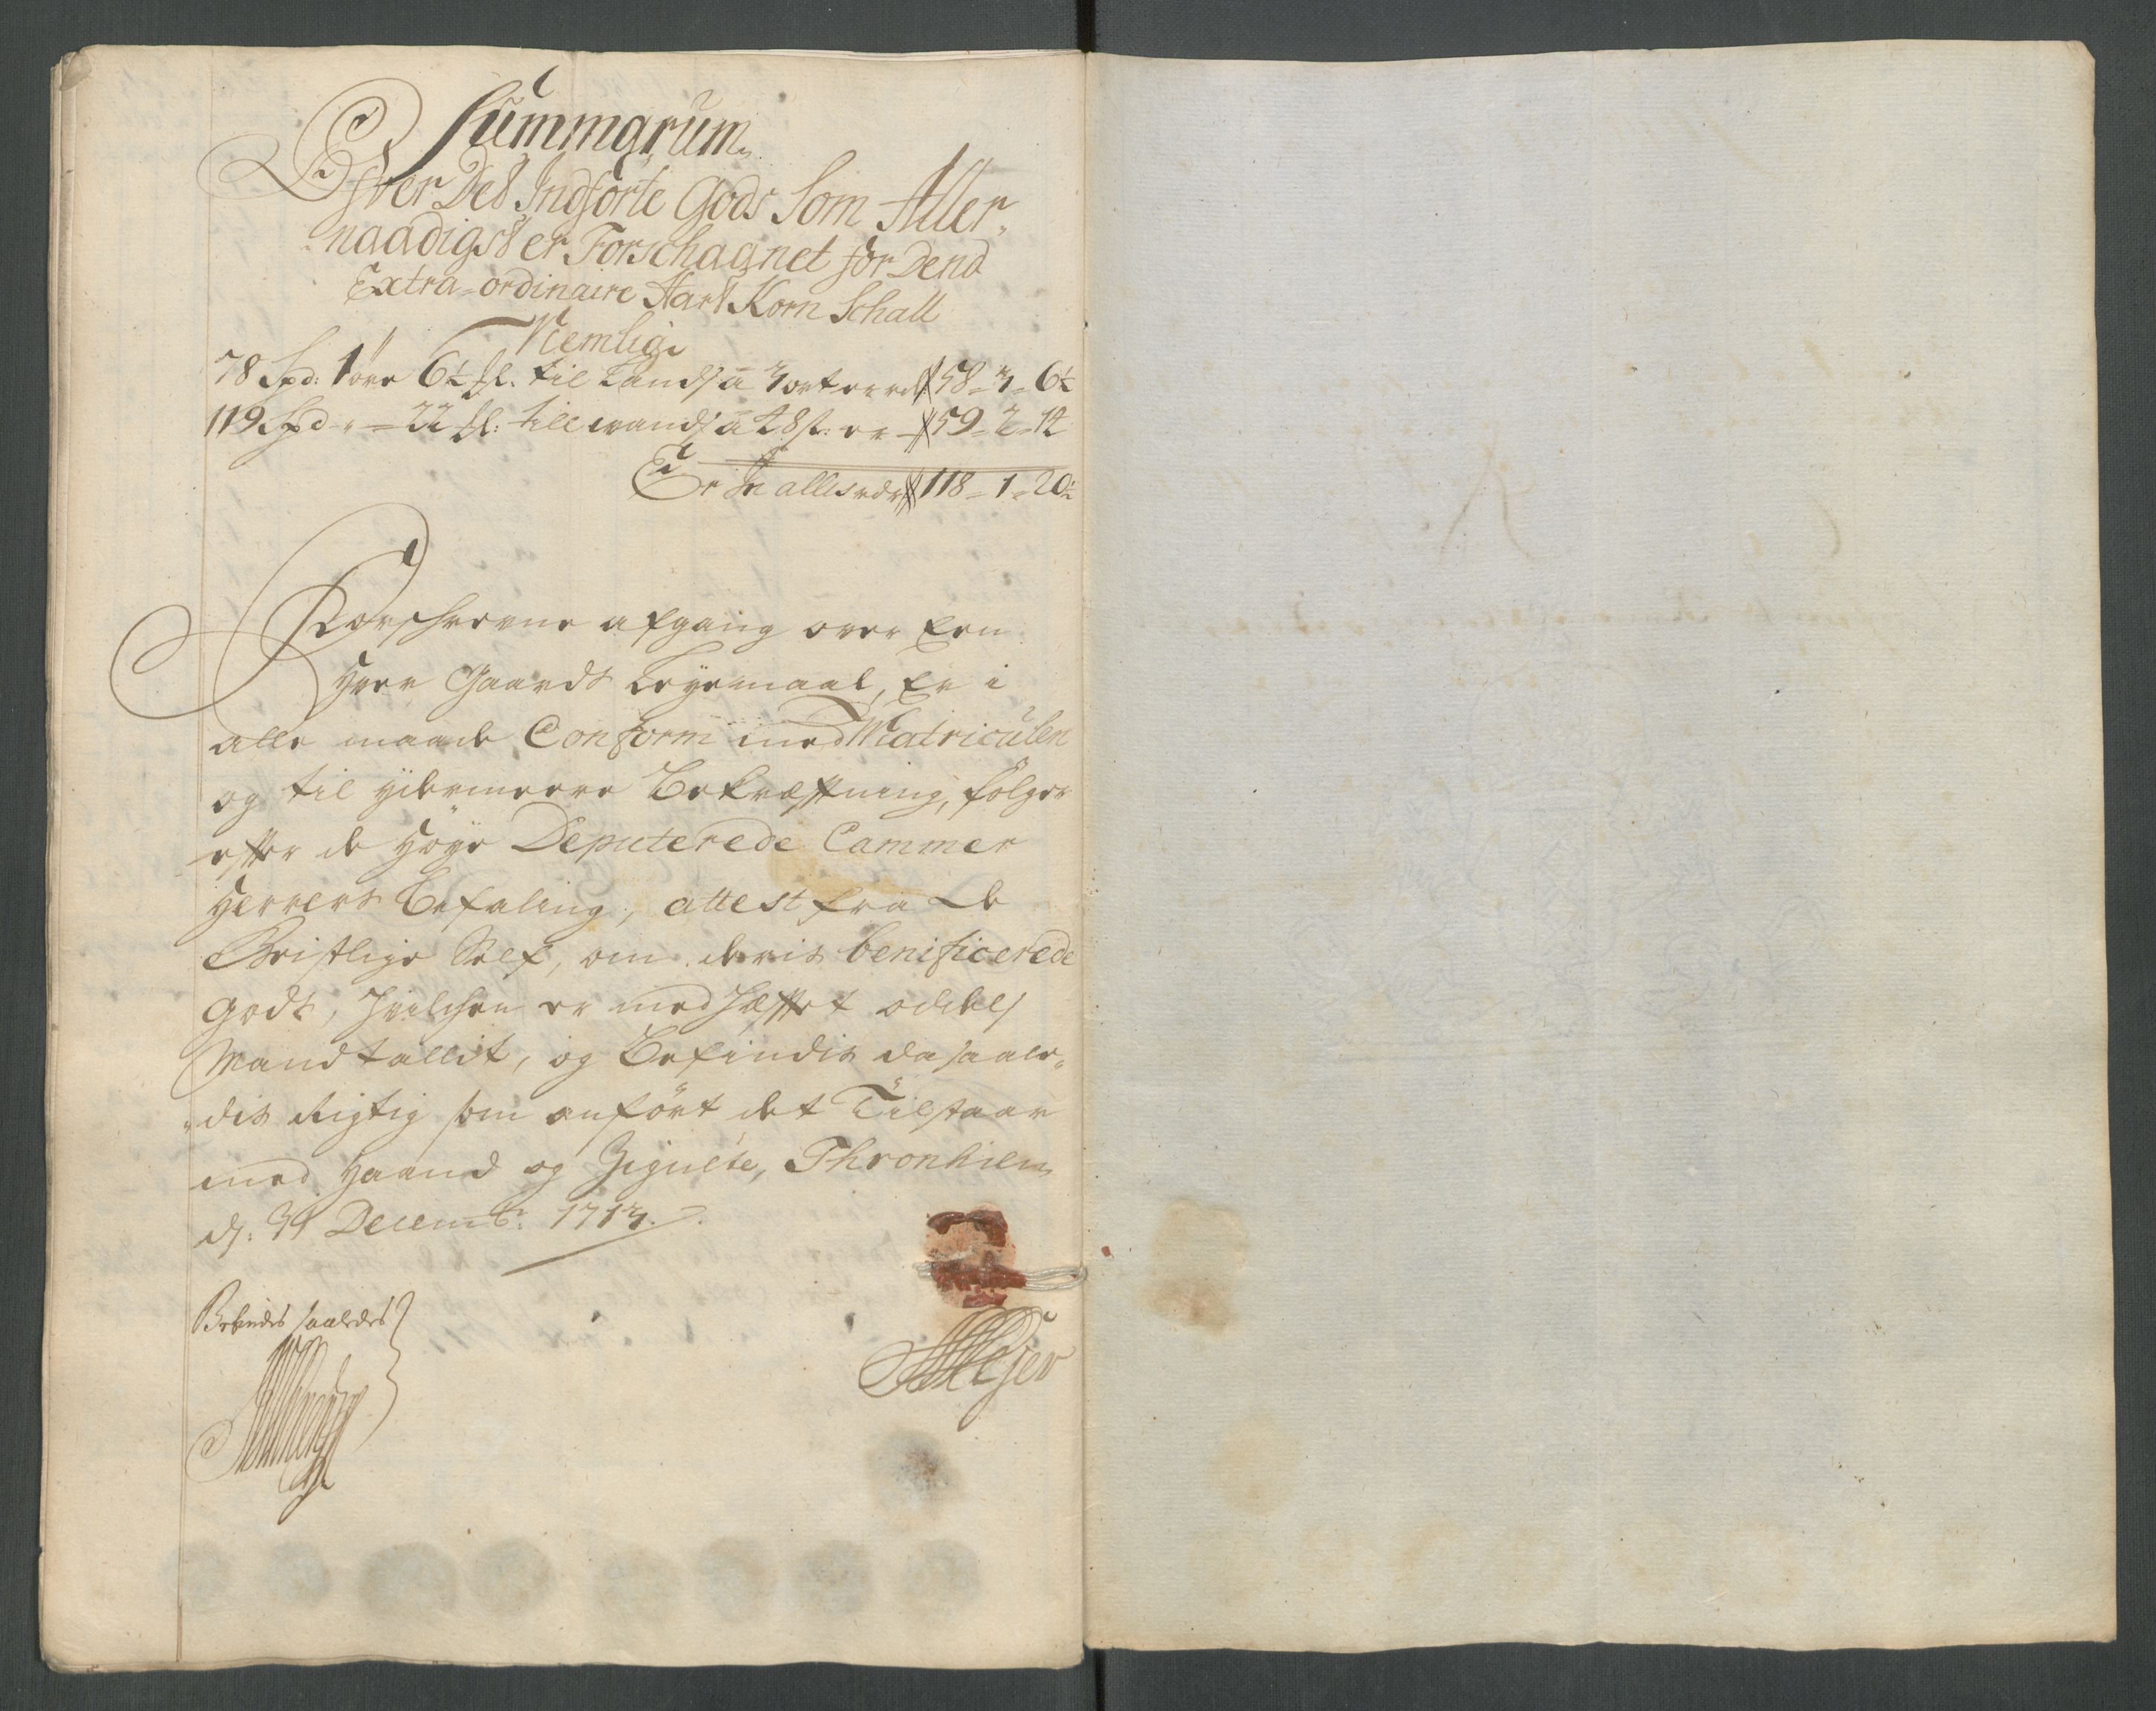 Summarum
Ofver Det Indførte Gods Som Aller„
naadigst er Forschaanet for Dend
Extra-ordinaire Hart Korn Schatt
Nemlig
78 Spd: 1 øre 6½ sl. til Lands â 3 ort er rdr 58 - 3 - 6½
119 Spd - „ - 22 sl: till wands â 48 s: er - 59 - 2 - 14
Er In alles rdr 118 - 1 - 20½
Forschrevne afgang over Een
hver Gaards Leyemaal, Er i
alle maade Conform med Matriculen
og til ydermeere Bekræfftning, følger
effter de høye Deputerede Cammer
Herrers Befaling, attest fra de
Geistlige Self, om deris benificerede
Gods, hvilchen er med hæfftet
Mandtallit, og Befindis da saale„
„dis Rigtig som anført det Tilstaar
med Haand og Zignete, Thronhiem
d: 31 Decembr: 1713.
Befindes saaledes